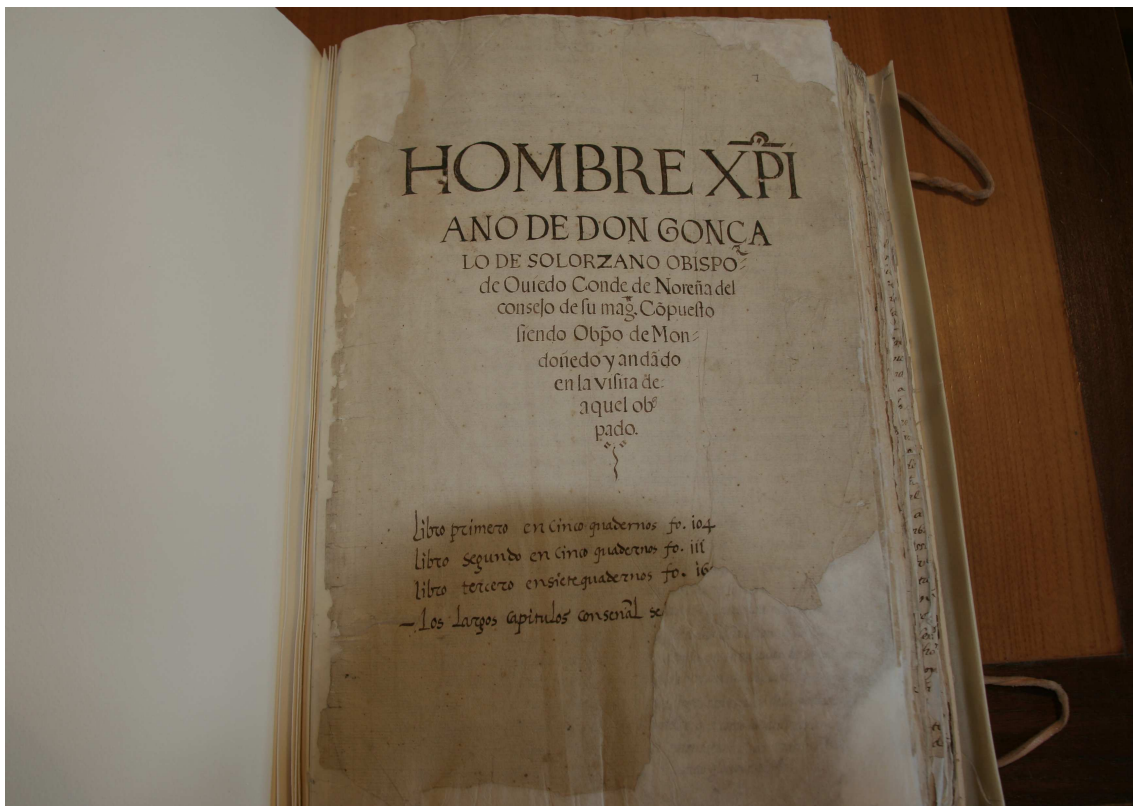 HOMBRE XP̃I
ANO DE DON GONÇA
LO DE SOLORZANO OBISPO
de Ouiedo Conde de Noreña del
consejo de su mag̃. Cõpuesto
siendo Obp̃o de Mon=
doñedo y andãdo
en la visita de
aquel ob
pado.
Libro primero en cinco quadernos fo. 104
Libro segundo en cinco quadernos fo. 111
libro tercero en siete quadernos fo. 16
— Los largos capitulos con señal se